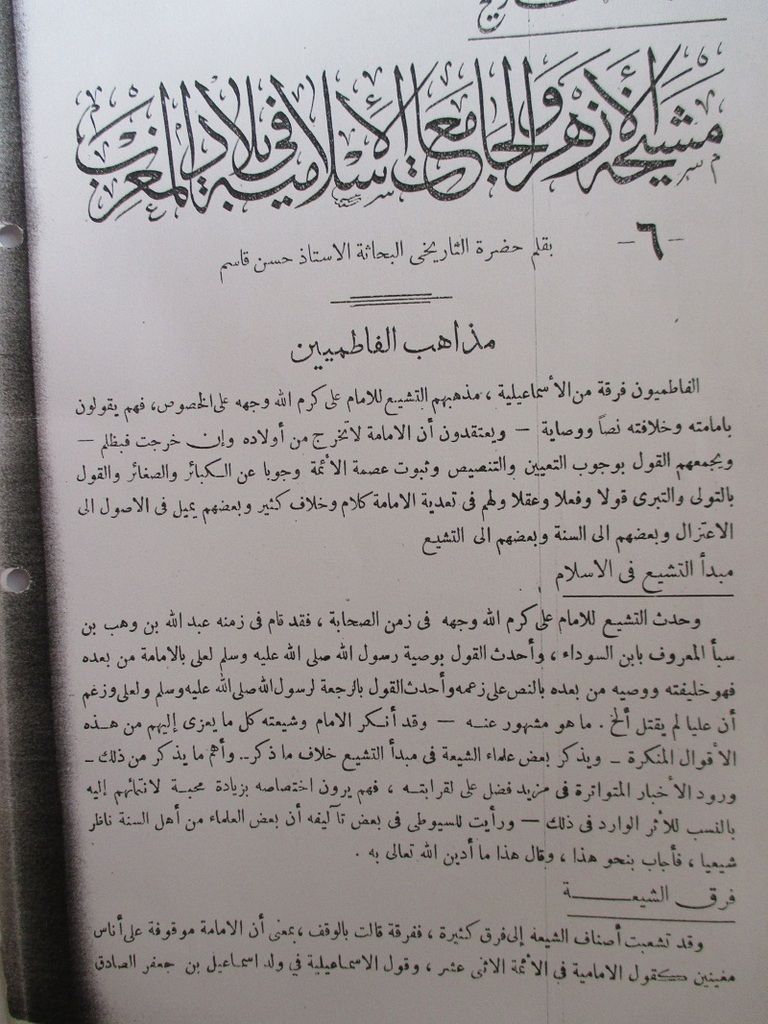 مشيخة الأزهر والجامعات الإسلامية في بلاد المغرب
- ٦ -
بقلم حضرة التاريخى البحاثة الاستاذ حسن قاسم
مذاهب الفاطميين
الفاطميون فرقة من الأسماعيلية ، مذهبهم التشيع للامام على كرم الله وجهه على الخصوص، فهم يقولون
بامامته وخلافته نصاً ووصاية — ويعتقدون أن الامامة لا تخرج من أولاده وإن خرجت فبظلم —
ويجمعهم القول بوجوب التعيين والتنصيص وثبوت عصمة الأئمة وجوبا عن الكبائر والصغائر والقول
بالتولى والتبرى قولا وفعلا وعقلا ولهم فى تعدية الامامة كلام وخلاف كثير وبعضهم يميل فى الاصول الى
الاعتزال وبعضهم الى السنة وبعضهم الى التشيع
مبدأ التشيع فى الاسلام
وحدث التشيع للامام على كرم الله وجهه فى زمن الصحابة ، فقد قام فى زمنه عبد الله بن وهب بن
سبأ المعروف بابن السوداء ، وأحدث القول بوصية رسول الله صلى الله عليه وسلم لعلى بالامامة من بعده
فهو خليفته ووصيه من بعده بالنص على زعمه وأحدث القول بالرجعة لرسول الله صلى الله عليه وسلم ولعلى وزعم
أن عليا لم يقتل ألخ . ما هو مشهور عنه — وقد أنكر الامام وشيعته كل ما يعزى إليهم من هذه
الاقوال المنكرة — ويذكر بعض علماء الشيعة فى مبدأ التشيع خلاف ما ذكر.. وأهم ما يذكر من ذلك —
ورود الأخبار المتواترة فى مزيد فضل على لقرابته ، فهم يرون اختصاصه بزيادة محبة لانتمائهم إليه
بالنسب للأثر الوارد فى ذلك — ورأيت للسيوطى فى بعض تآليفه أن بعض العلماء من أهل السنة ناظر
شيعيا ، فأجاب بنحو هذا ، وقال هذا ما أدين الله تعالى به .
فرق الشيعة
وقد تشعبت أصناف الشيعه إلى فرق كثيرة ، ففرقة قالت بالوقف ، بمعنى أن الامامة موقوفة على أناس
معينين ككقول الامامية في الأئمة الاثنى عشر ، وقول الاسماعيلية في ولد اسماعيل بن جعفر الصادق